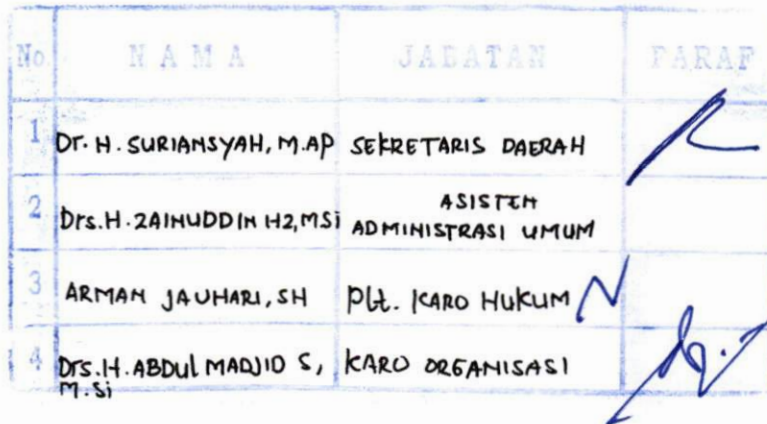 No NAMA JABATAN PARAF
1 Dr. H. SURIANSYAH, M.AP SEKRETARIS DAERAH
2 Drs. H. ZAINUDDIN HZ, MSi ASISTEN
ADMINISTRASI UMUM
3 ARMAN JAUHARI, SH Plt. KARO HUKUM
4 Drs. H. ABDUL MADJID S, KARO ORGANISASI
M.Si